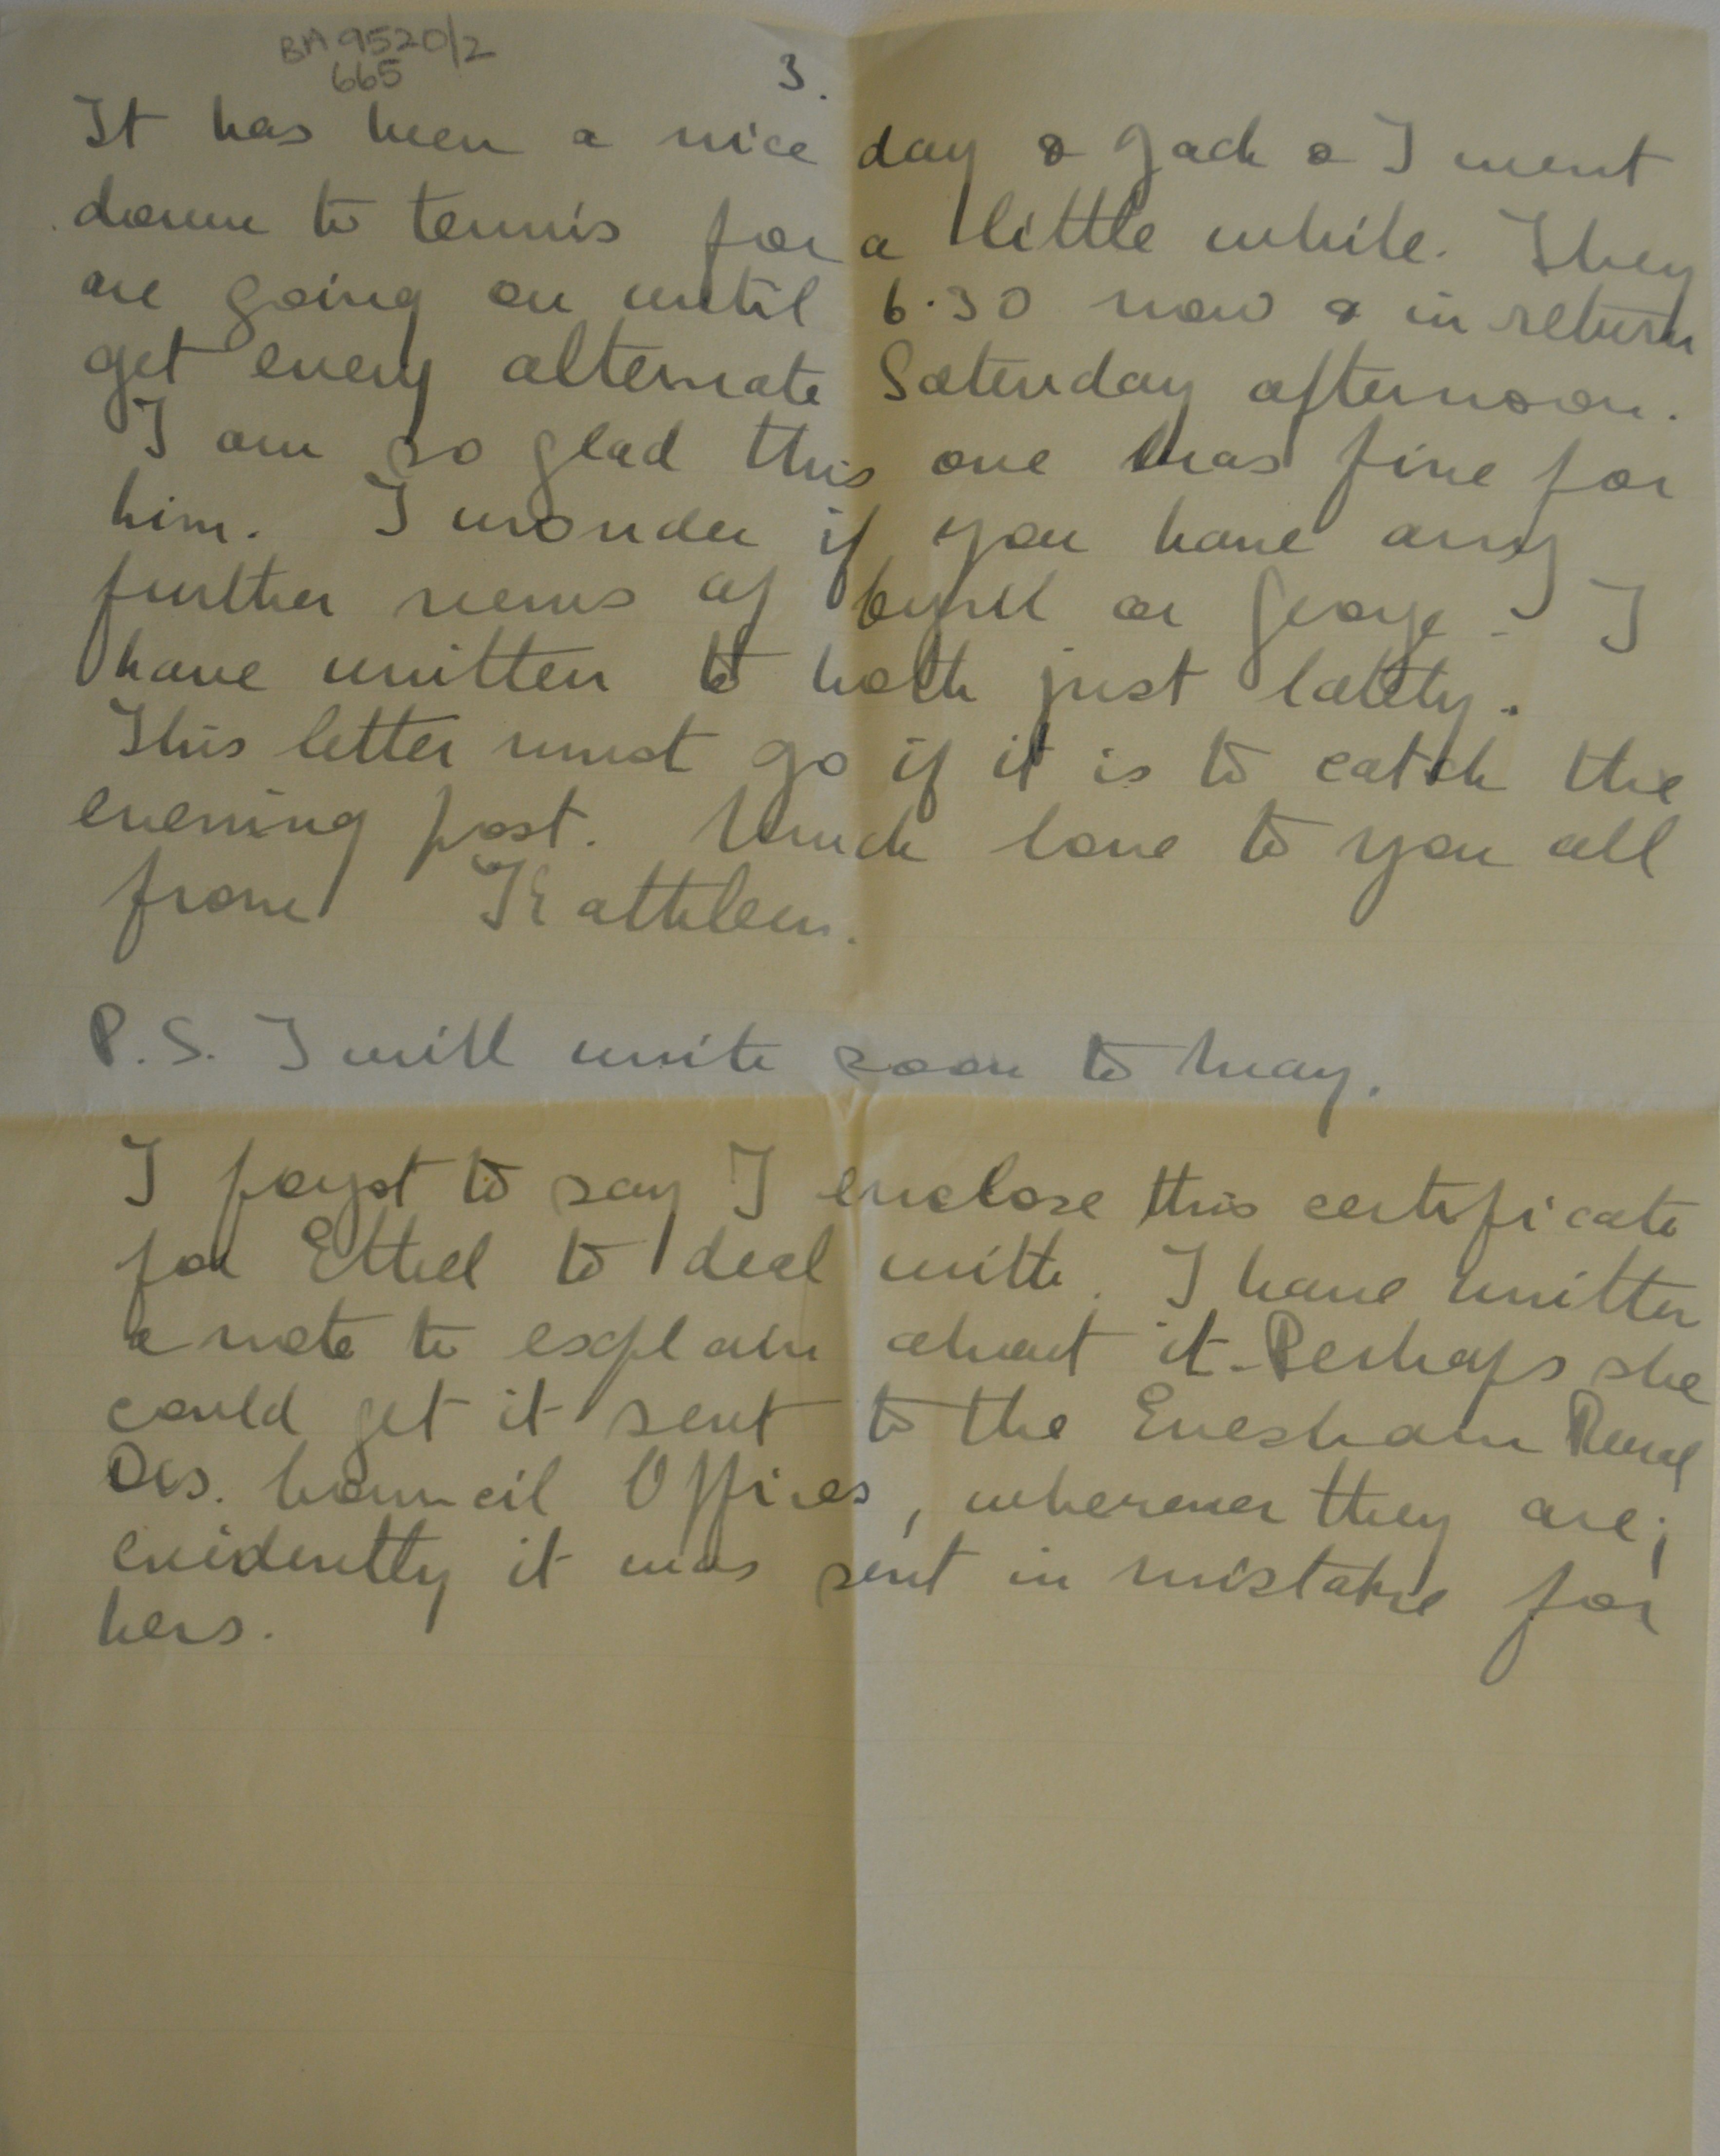 BA 9520/2
665
3.
It has been a nice day & Jack & I went
down to tennis for a little while. They
are going on until 6.30 now & in return
get every alternate Saturday afternoon.
I am so glad this one was fine for
him. I wonder if you have any
further news of Cyril or George - I
have written to both just lately.
This letter must go if it is to catch the
evening post. Much love to you all
from Kathleen.
P.S. I will write soon to May.
I forgot to say I enclose this certificate
for Ethel to deal with. I have written
a note to explain about it. Perhaps she
could get it sent to the Evesham Rural
Dis. Council Offices, wherever they are;
evidently it was sent in mistake for
hers.